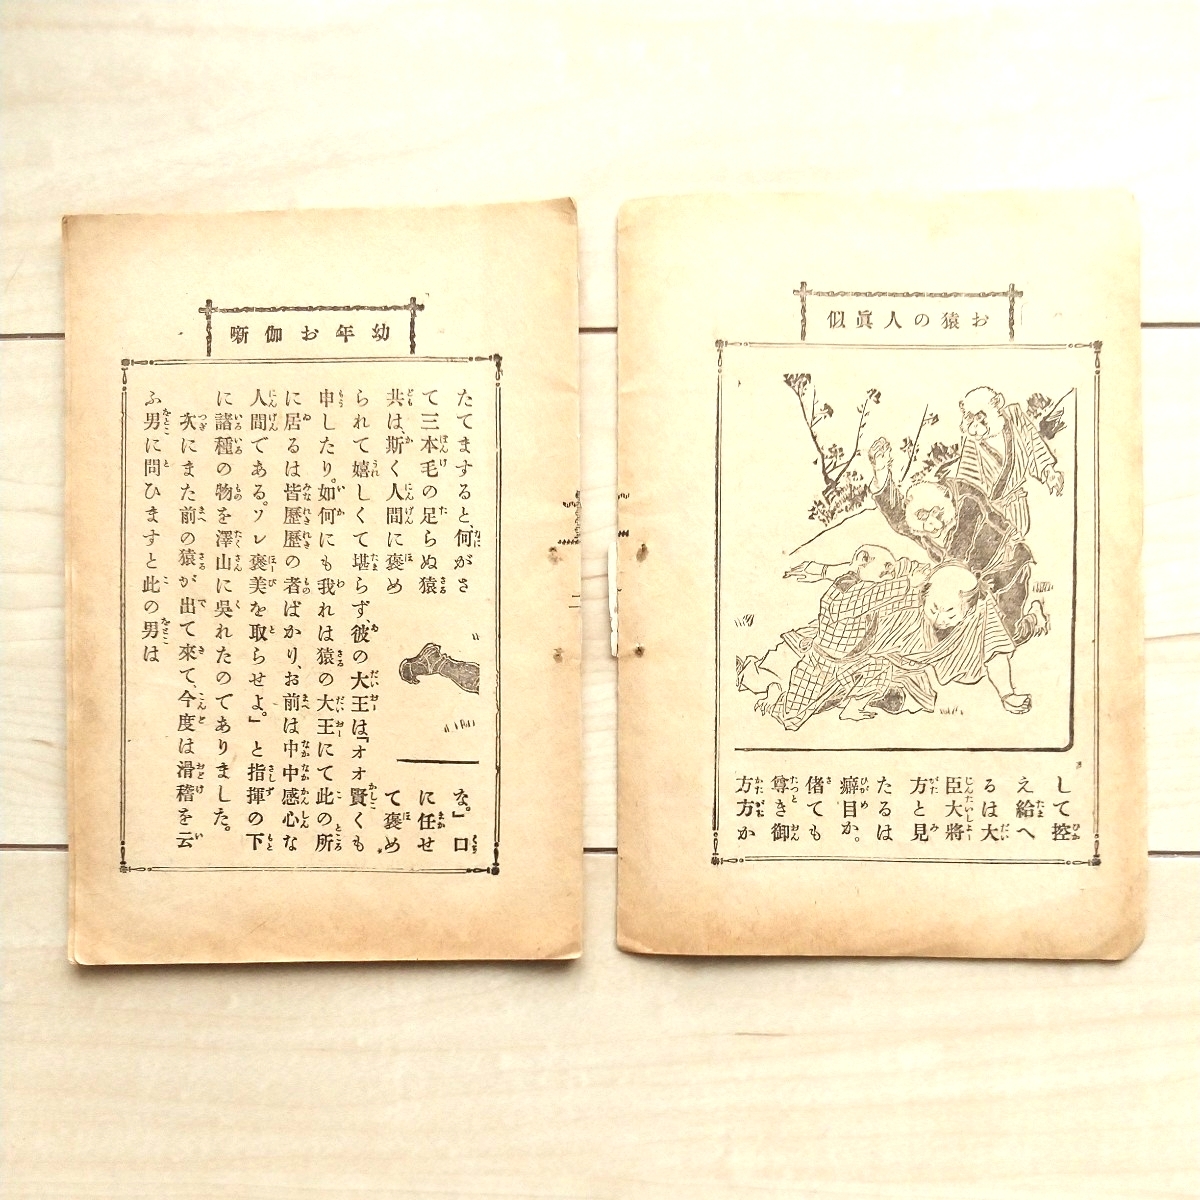 お猿の人眞似
して控
え給へ
るは大
臣大將
方と見
たるは
癖目か。
偖ても
尊き御
方方か
幼年お伽噺
な。」口
に任せ
て褒め
たてますると、何がさ
て三本毛の足らぬ猿
共は、斯く人間に褒め
られて嬉しくて堪らず、彼の大王は『オオ賢くも
申したり。如何にも我れは猿の大王にて此の所
に居るは皆歷歷の者ばかり、お前は中中感心な
人間である。ソレ褒美を取らせよ。」と指揮の下
に諸種の物を澤山に吳れたのでありました。
次にまた前の猿が出て來て、今度は滑稽を云
ふ男に問ひますと此の男は